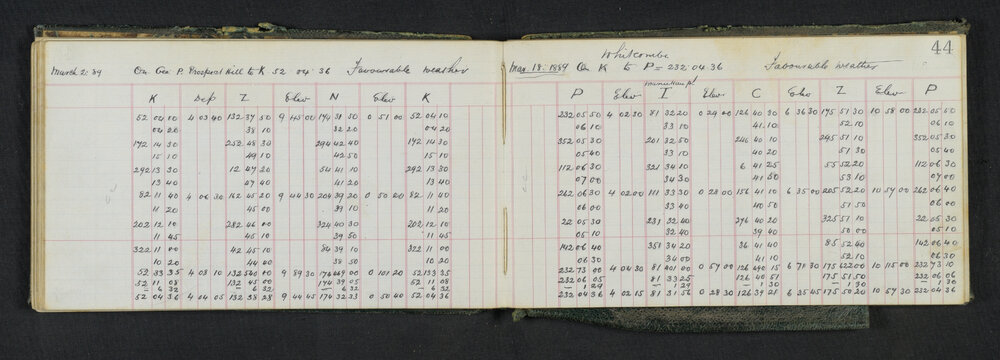 44
March 2. 89 On Geo P. Prospect Hill to K 52 04 36 Favourable Weather
K Dep Z Elev N Elev K
52 04 10 4 03 40 132 37 50 9 45 00 174 31 30 0 51 00 52 04 10
04 20 38 10 32 20 04 20
172 14 30 252 48 30 294 42 40 172 14 30
15 10 49 10 42 50 15 10
292 13 30 12 47 20 54 41 10 292 13 30
13 40 47 40 41 20 13 40
82 11 40 4 06 30 162 45 20 9 44 30 204 39 20 0 50 20 82 11 40
11 20 45 00 39 10 11 20
202 12 10 282 46 00 324 40 30 202 12 10
11 45 45 10 39 50 11 45
322 11 00 42 45 10 84 39 10 322 11 00
10 20 44 00 38 50 10 20
52 133 35 4 08 10 132 540 00 9 89 30 174 469 00 0 101 20 52 133 35
52 11 08 132 45 00 174 39 05 52 11 08
6 32 6 32 6 32 6 32
52 04 36 4 04 05 132 38 28 9 44 45 174 32 33 0 50 40 52 04 36
Whitcombe
Mar. 18. 1889 On K to P – 232 04 36 Favourable weather
P Elev I Elev C Elev Z Elev P
232 05 50 4 02 30 81 32 20 0 29 00 126 40 30 6 36 30 175 51 30 10 58 00 232 05 50
06 10 33 10 41 10 52 10 06 10
352 05 30 201 32 50 246 40 10 295 51 10 352 05 30
05 40 33 10 40 20 51 30 05 40
112 06 30 321 34 10 6 41 25 55 52 20 112 06 30
07 00 34 30 41 50 53 10 07 00
262 06 40 4 02 00 111 33 30 0 28 00 156 41 10 6 35 00 205 52 20 10 57 00 262 06 40
06 00 33 40 40 50 51 50 06 00
22 05 30 231 32 40 276 40 20 325 51 10 22 05 30
05 10 32 40 39 40 50 00 05 10
142 06 40 351 34 20 36 41 40 85 52 40 142 06 40
06 30 34 00 41 10 52 10 06 30
232 73 00 4 04 30 81 401 00 0 57 00 126 490 15 6 71 30 175 622 00 10 115 00 232 73 10
232 06 05 81 33 25 126 40 51 175 51 50 232 06 06
– 1 29 – 1 29 – 1 30 – 1 30 – 1 30
232 04 36 4 02 15 81 31 56 0 28 30 126 39 21 6 35 45 175 50 20 10 57 30 232 04 36